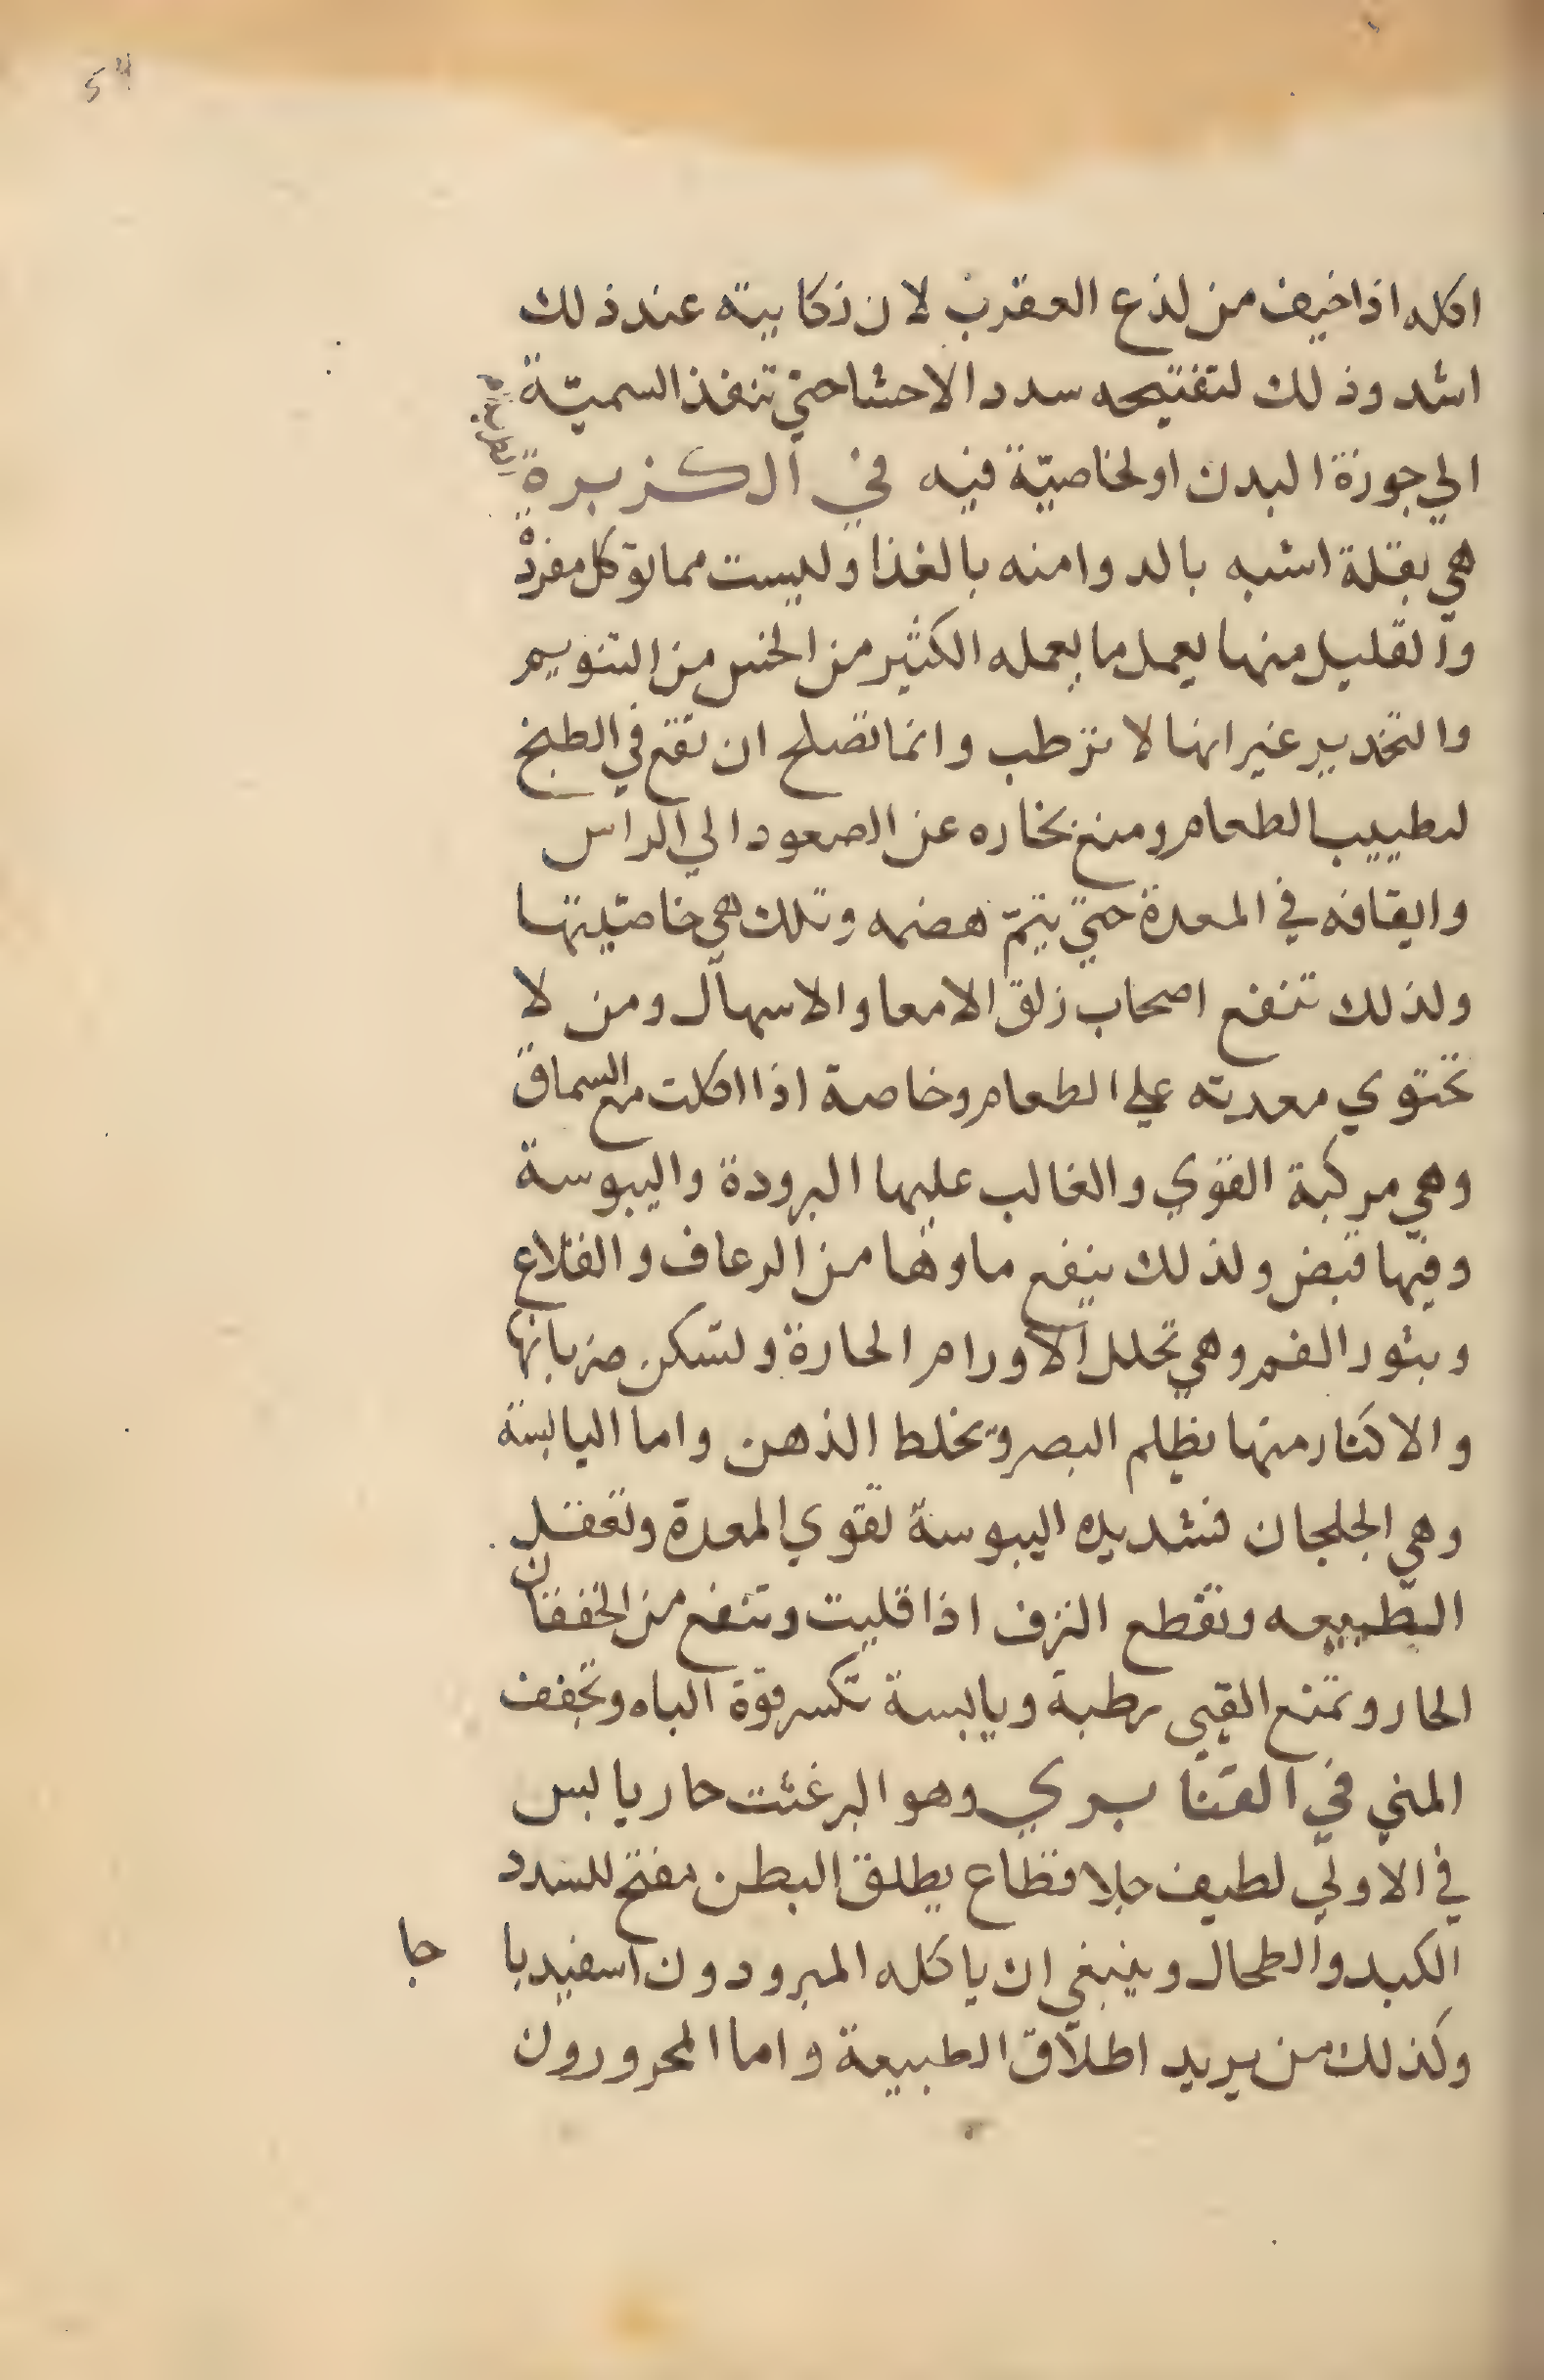 54
اكله اذا خيف من لذع العقرب لان نكايته عند ذلك
اشد وذلك لتفتيحه سدد الاحشا حتي تنفذ السميّة
الي جوزة البدن او لخاصيّة فيه في الكزبرة
الرطبة
هي بقلة اشبه بالدوا منه بالغذا وليست مما توكل مفردة
والقليل منها يعمل ما يعمله الكثير من الخس من التنويم
والتخدير غير انها لا ترطب وانما تصلح ان تقع في الطبخ
لتطييب الطعام ومنع بخاره عن الصعود الي الراس
وايقافه في المعدة حتي يتمّ هضمه وتلك هي خاصيّيتها
ولذلك تنفع اصحاب زلق الامعا والاسهال ومن لا
تحتوي معدته علي الطعام وخاصة اذا اكلت مع السماق
وهي مركبة القوي والغالب عليها البرودة واليبوسة
وفيها قبض ولذلك ينفع ماوها من الرعاف والقلاع
وبثور الفم وهي تحلل الاورام الحارة وتسكن ضربانها
والاكثار منها يظلم البصر وتخلط الذهن واما اليابسة
وهي الجلجان فشديده اليبوسة تقوي المعدة وتعقل
الطبيعه وتقطع النزف اذا قليت وتنفع من الخفقان
الحار وتمنع القيي رطبة ويابسة تكسر قوة الباه وتجفف
المني في القنابري وهو البرغئت حار يابس
في الاولي لطيف جلا قطاع يطلق البطن مفتح للسدد
الكبد والطحال وينبغي ان ياكله المبرودون اسفيدبا جا
وكذلك من يريد اطلاق الطبيعة واما المحرورون